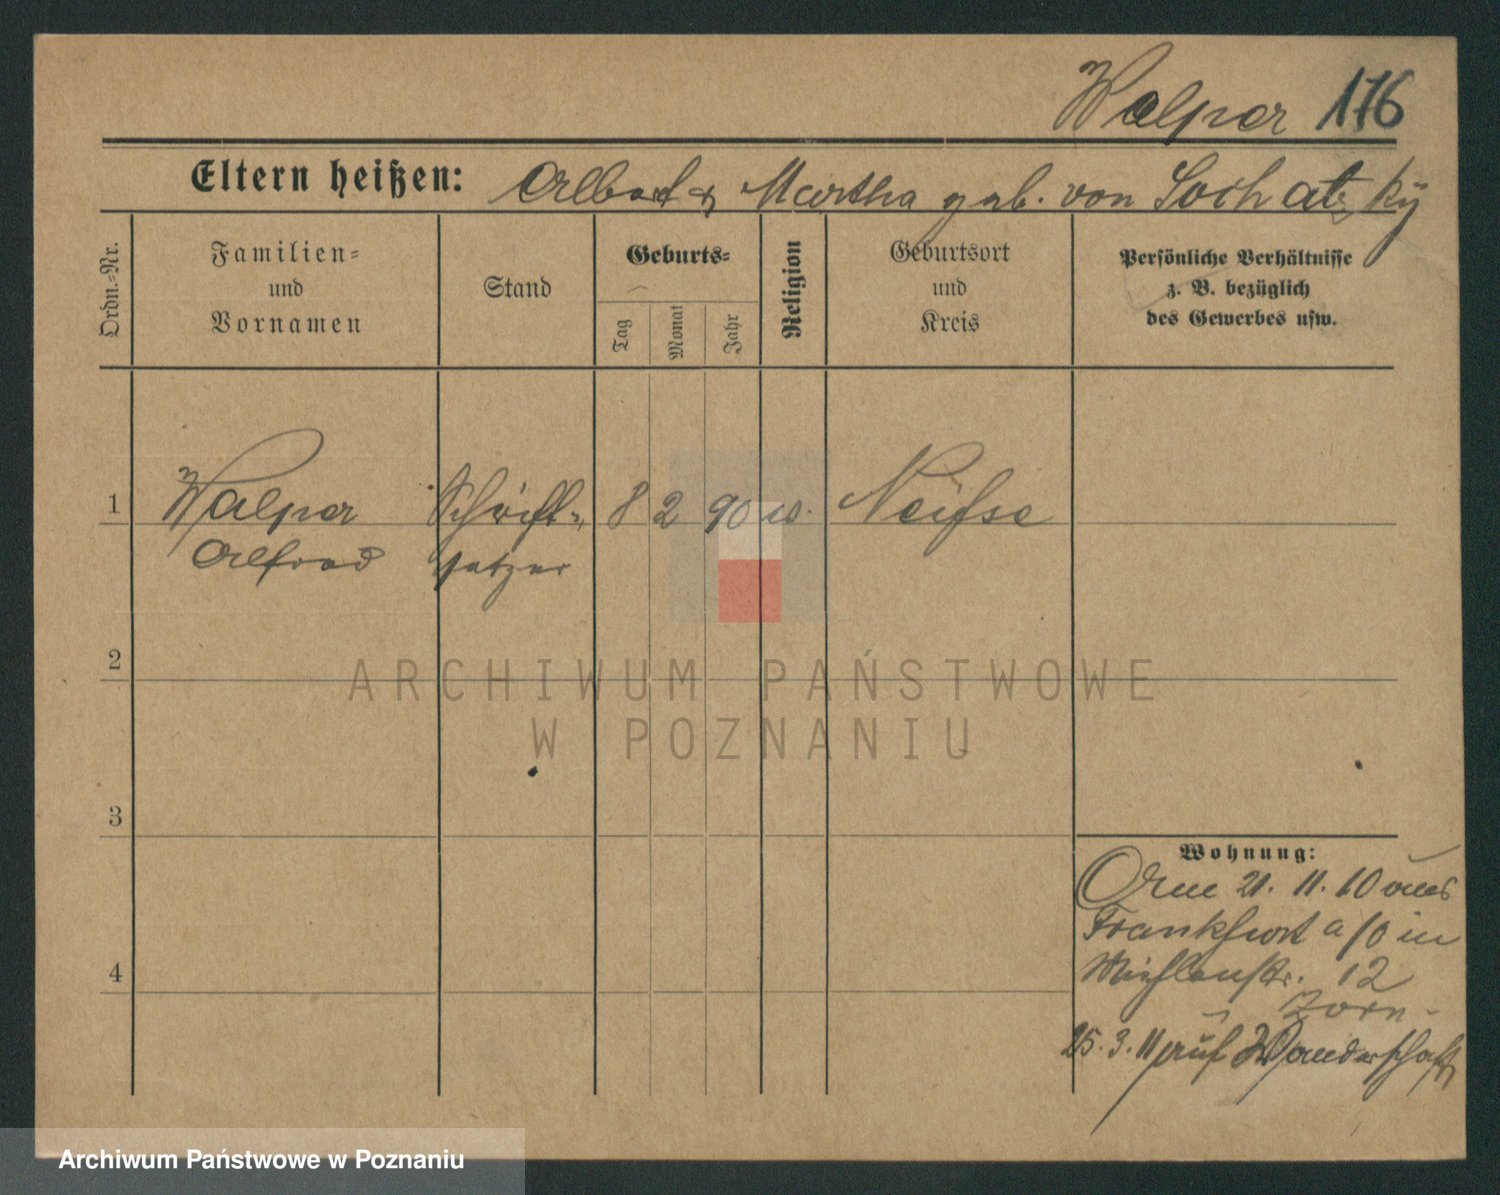 Walper 176
Eltern heißen: Albert & Martha geb. von Sochatzky
Ordn.-Nr.
Familien-
und
Vornamen
Stand
Geburts-
Tag
Monat
Jahr
Religion
Geburtsort
und
Kreis
Persönliche Verhältnisse
z. B. bezüglich
des Gewerbes usw.
1 Walper Schrift- 8 2 90 Neisse
Alfred setzer
2
3
4
Wohnung:
21. 11. 10 aus
Frankfurt a/O in
Mühlenstr. 12
Zorn
25. 3. 11 auf Wanderschaft
ARCHIWUM PAŃSTWOWE
W POZNANIU
Archiwum Państwowe w Poznaniu